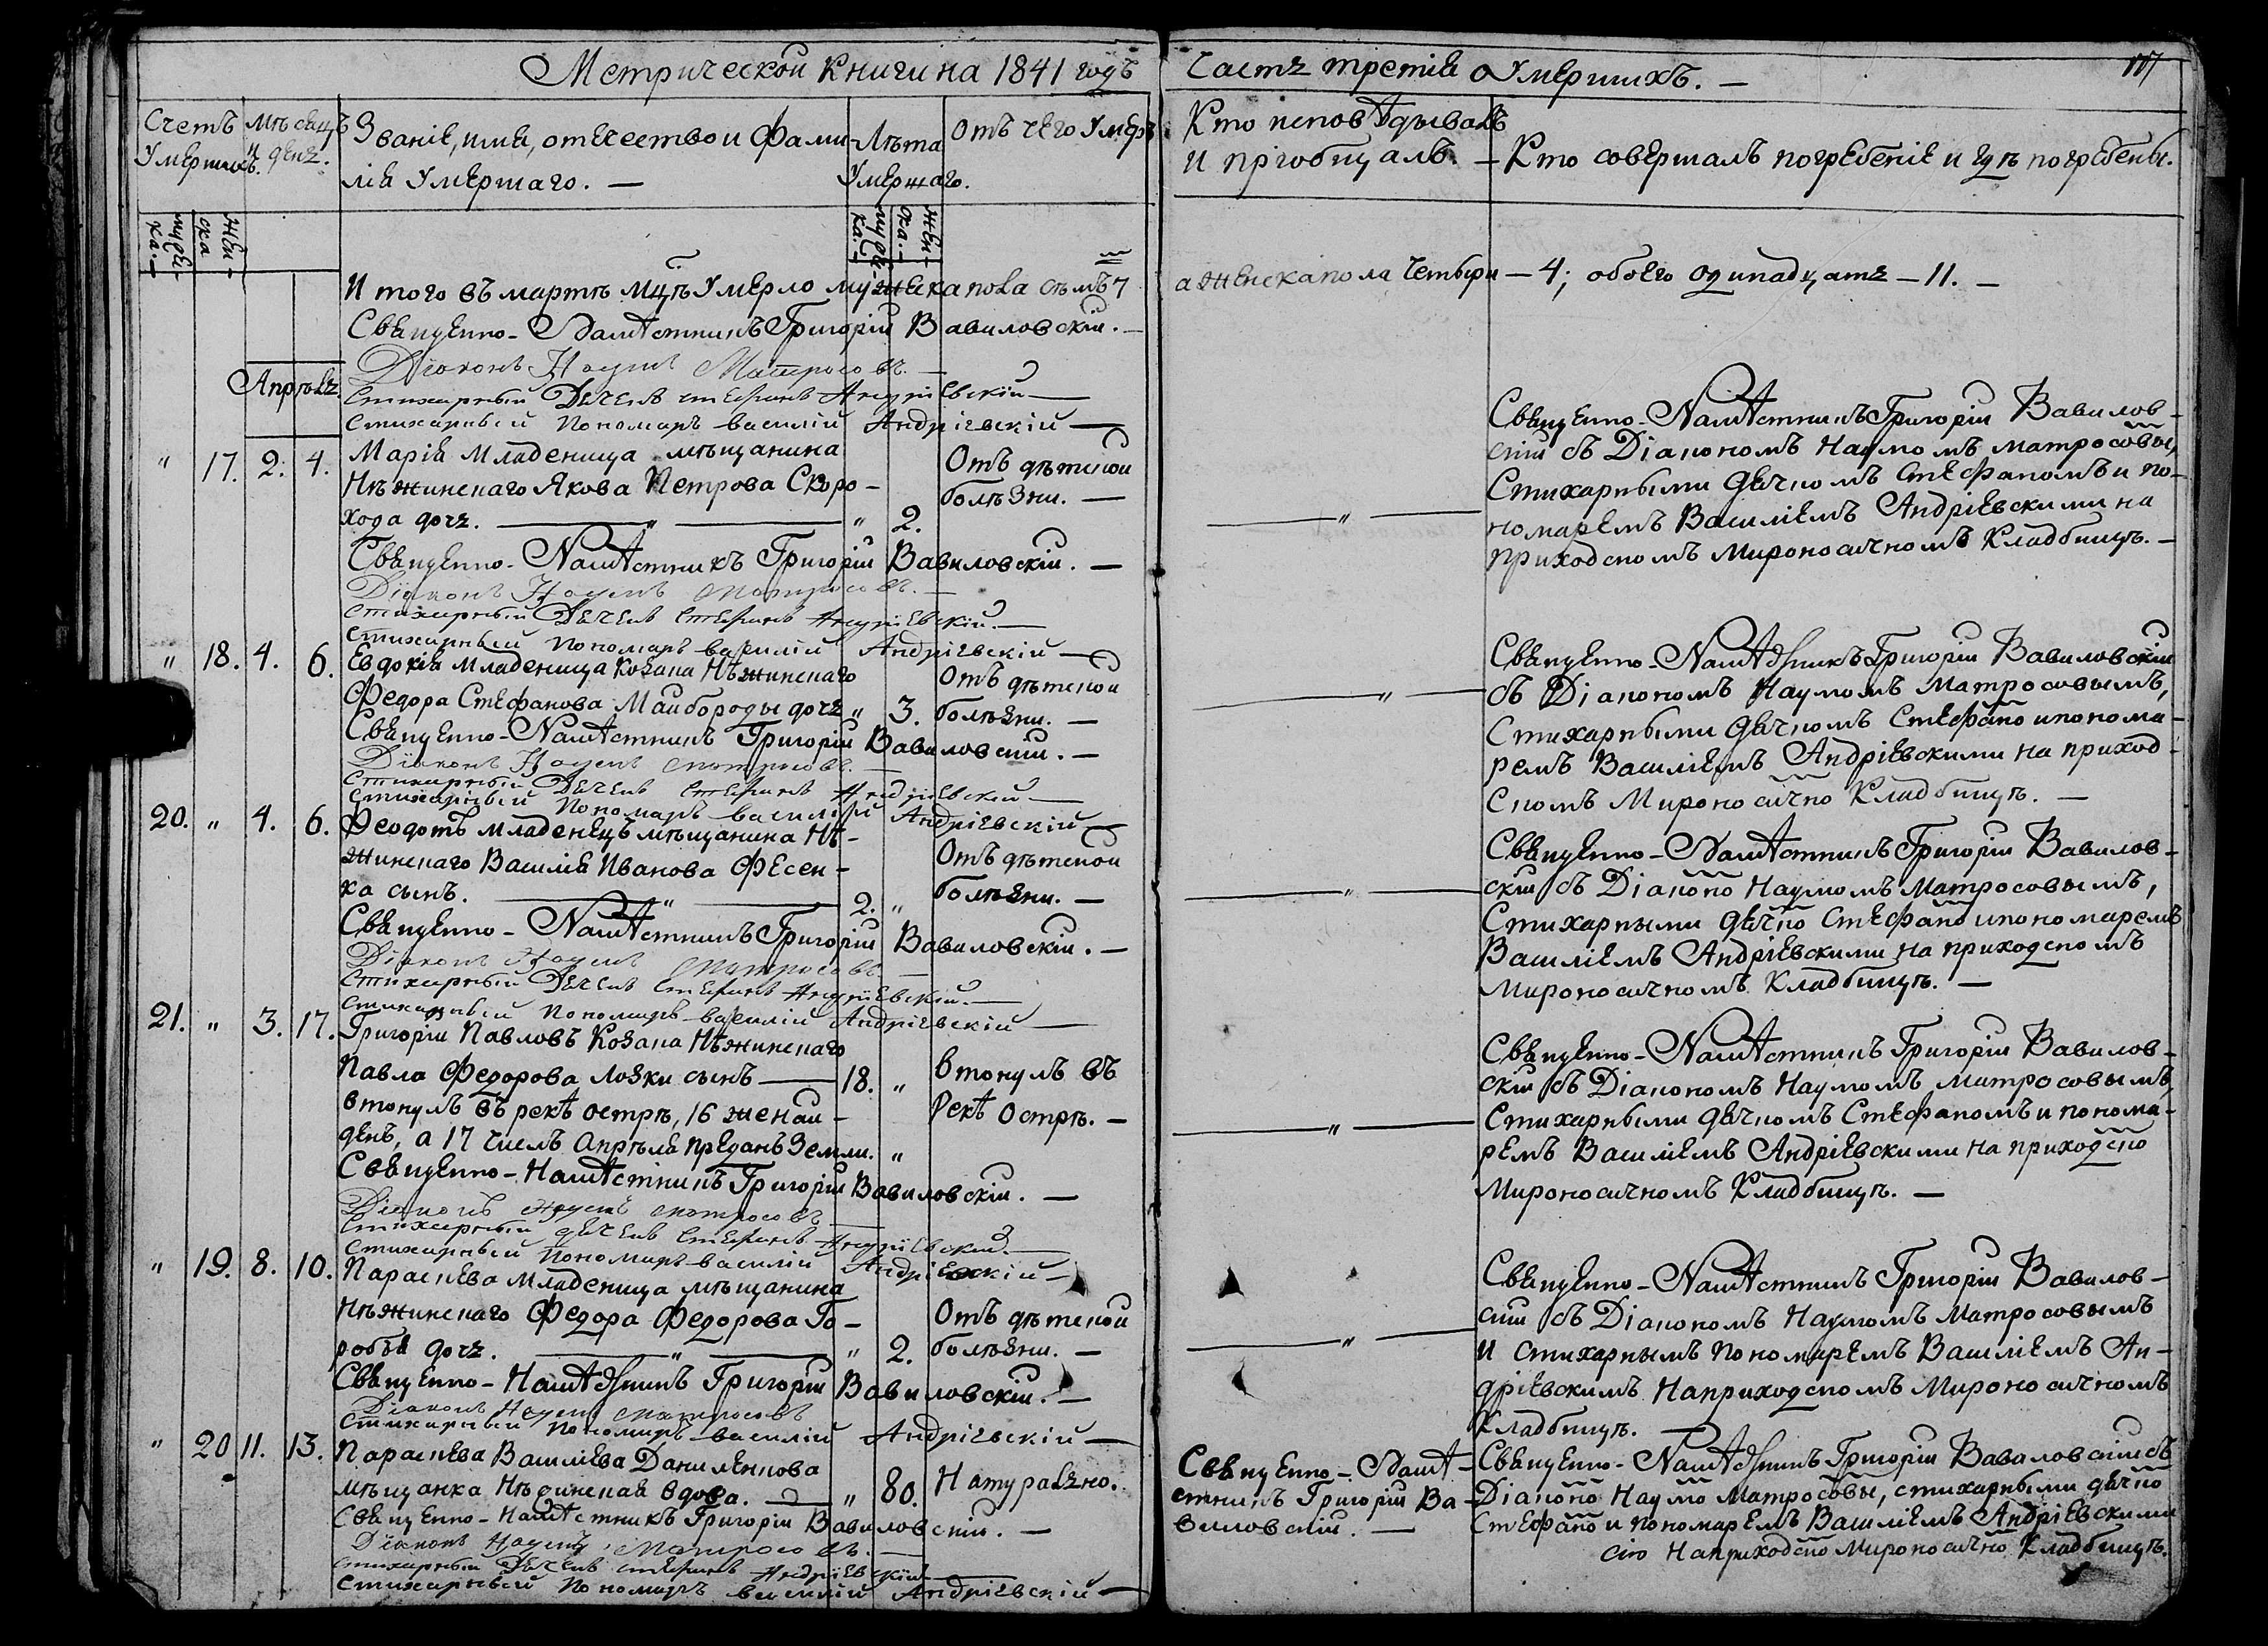 Метрической книги на 1841 годъ
Часть третія о Умершихъ. —
117
Счетъ Умершихъ.
Мѣсяцъ и день.
Званіе, имя, отчество и фами-
лія Умершаго. —
Лѣта
Умершаго.
Отъ чего Умеръ
Кто исповѣдывалъ
и пріобщалъ. —
Кто совершалъ погребеніе и гдѣ погребены.
мужес-
ка. —
жен-
ска
мужес-
ка. —
жен-
ска. —
Итого въ мартѣ мцѣ Умерло мужеска пола семь 7
а женска пола четыри — 4; обоего одинадцать — 11. —
Священно-Намѣстникъ Григорій Вавиловскій. —
Діаконъ Наумъ Матросовъ. —
Стихарный Дьячекъ Стефанъ Андріевскій —
Стихарный Пономарь Василій Андріевскій —
Апрѣль
" 17. 2. 4.
Марія Младеница мѣщанина
Нѣжинскаго Якова Петрова Скоро-
хода дочь. — " — " 2.
Отъ дѣтской
болѣзни. —
— " —
Священно-Намѣстникъ Григорій Вавилов-
скій съ Діакономъ Наумомъ Матросовы,
Стихарными дьячкомъ Стефаномъ и по-
номаремъ Василіемъ Андріевскими на
приходскомъ Мироносичномъ Кладбищѣ. —
Священно-Намѣстникъ Григорій Вавиловскій. —
Діаконъ Наумъ Матросовъ. —
Стихарный Дьячекъ Стефанъ Андріевскій. —
Стихарный Пономарь Василій Андріевскій —
" 18. 4. 6.
Евдокія Младеница Козака Нѣжинскаго
Федора Стефанова Майбороды дочь " 3.
Отъ дѣтской
болѣзни. —
— " —
Священно-Намѣстникъ Григорій Вавиловскій
съ Діакономъ Наумомъ Матросовымъ,
Стихарными дьячкомъ Стефано и понома-
ремъ Василіемъ Андріевскими на приход-
скомъ Мироносично Кладбищѣ. —
Священно-Намѣстникъ Григорій Вавиловскій. —
Діаконъ Наумъ Матросовъ. —
Стихарный Дьячекъ Стефанъ Андріевскій —
Стихарный Пономарь Василій Андріевскій —
20. " 4. 6.
Феодотъ младенецъ мѣщанина Нѣ-
жинскаго Василія Иванова Фесен-
ка сынъ. — " — 2. "
Отъ дѣтской
болѣзни. —
— " —
Священно-Намѣстникъ Григорій Вавилов-
скій съ Діаконо Наумомъ Матросовымъ,
Стихарными дьячко Стефано и пономаремъ
Василіемъ Андріевскими на приходскомъ
Мироносичномъ Кладбищѣ. —
Священно-Намѣстникъ Григорій Вавиловскій. —
Діаконъ Наумъ Матросовъ —
Стихарный Дьячекъ Стефанъ Андріевскій. —
Стихарный Пономарь Василій Андріевскій —
21. " 3. 17.
Григорій Павловъ Козака Нѣжинскаго
Павла Федорова Лозки сынъ — 18. "
втонулъ въ рекѣ Острѣ, 16 же най-
денъ, а 17 числъ Апрѣля преданъ Земли. "
Втонулъ въ
Рекѣ Острѣ. —
— " —
Священно-Намѣстникъ Григорій Вавилов-
скій съ Діакономъ Наумомъ Матросовымъ,
Стихарными дьячкомъ Стефаномъ и понома-
ремъ Василіемъ Андріевскими на приходско
Мироносичномъ Кладбищѣ. —
Священно-Намѣстникъ Григорій Вавиловскій. —
Діаконъ Наумъ Матросовъ —
Стихарный дьячекъ Стефанъ Андріевскій —
Стихарный Пономарь Василій Андріевскій —
" 19. 8. 10.
Параскева Младеница мѣщанина
Нѣжинскаго Федора Федорова Го-
робья дочь. — " — " 2.
Отъ дѣтской
болѣзни. —
— " —
Священно-Намѣстникъ Григорій Вавилов-
скій съ Діакономъ Наумомъ Матросовымъ
и стихарнымъ Пономаремъ Василіемъ Ан-
дріевскимъ На приходскомъ Мироносичномъ
Кладбищѣ. —
Священно-Намѣстникъ Григорій Вавиловскій. —
Діаконъ Наумъ Матросовъ
Стихарный Пономарь Василій Андріевскій —
" 20 11. 13.
Параскева Василіева Даниленкова
мѣщанка Нѣжинская вдова. — " 80.
Натурально.
Священно-Намѣ-
стникъ Григорій Ва-
виловскій. —
Священно-Намѣстникъ Григорій Вавиловскій съ
Діаконо Наумо Матросовы, стихарными дьячко
Стефано и пономаремъ Василіемъ Андріевскими
На приходско Мироносично Кладбищѣ.
Священно-Намѣстникъ Григорій Вавиловскій. —
Діаконъ Наумъ Матросовъ. —
Стихарный Дьячекъ Стефанъ Андріевскій —
Стихарный Пономарь Василій Андріевскій —